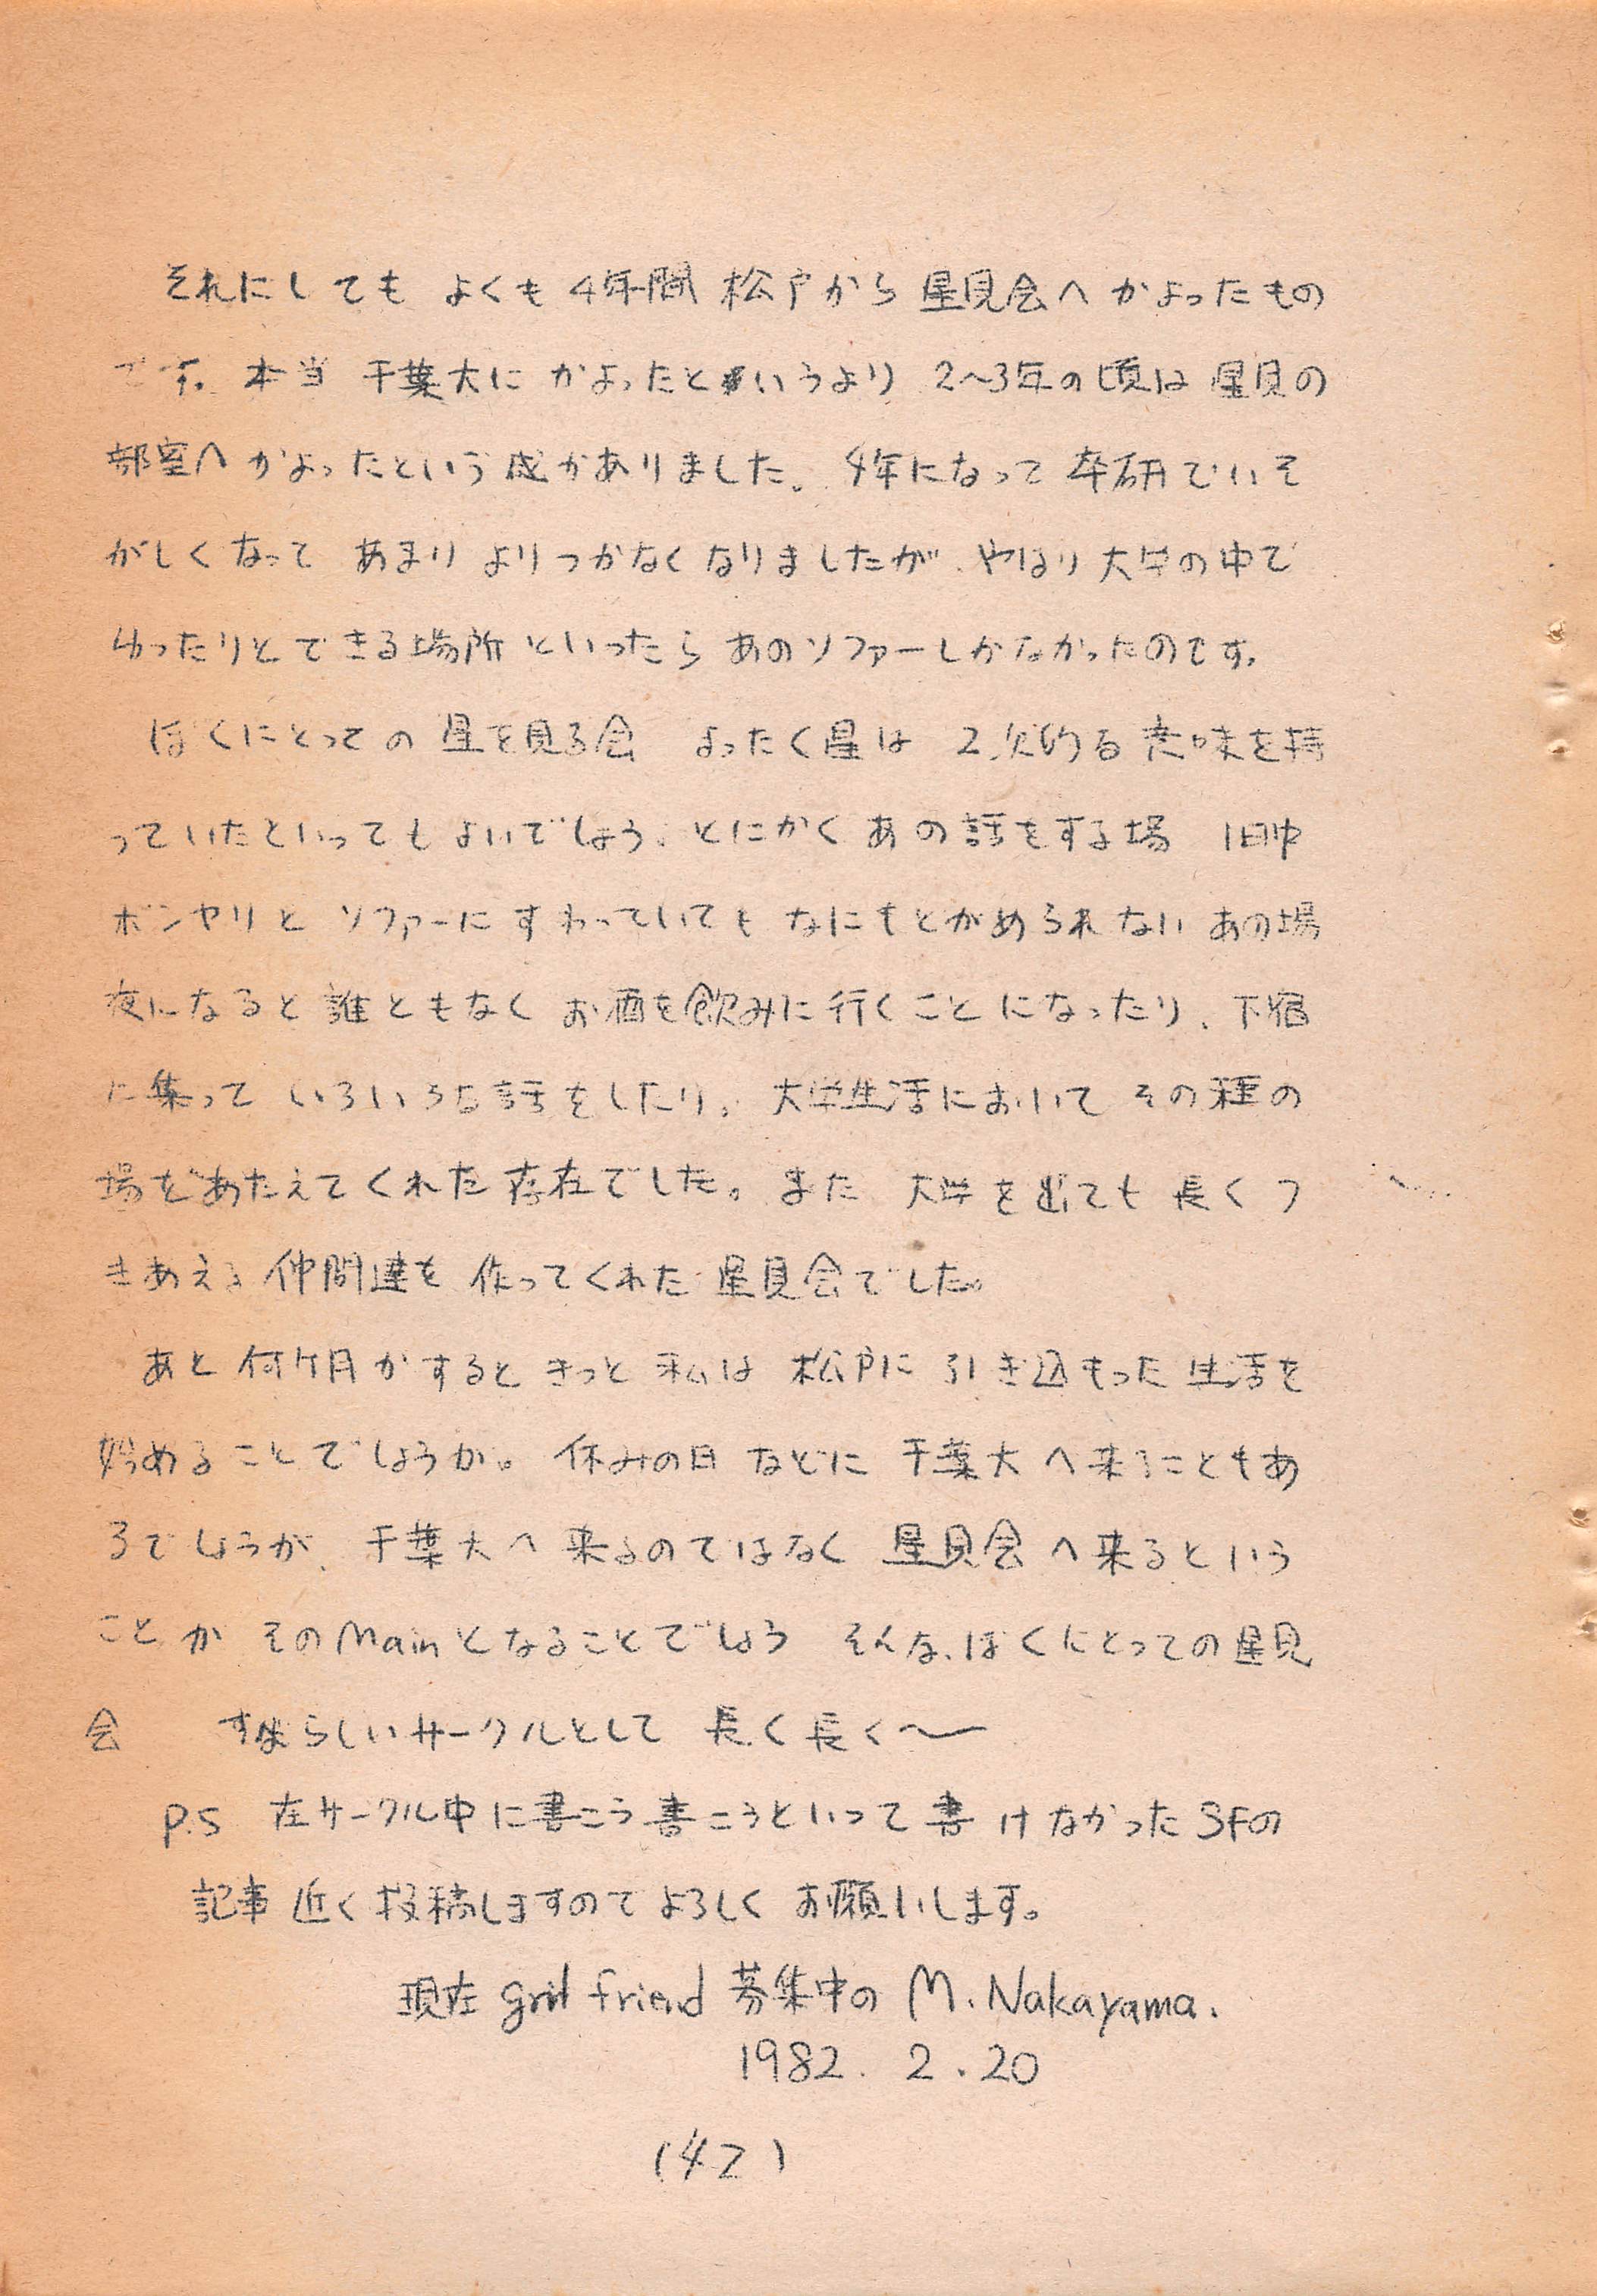 それにしても よくも 4年間 松戸から 星見会へ かよったもの
です。本当 千葉大に かよったというより 2〜3年の頃は 星見の
部室へ かよったという感がありました。4年になって 卒研でいそ
がしくなって あまり よりつかなくなりましたが、やはり 大学の中で
ゆったりとできる場所 といったら あのソファーしかなかったのです。
ぼくにとっての 星を見る会 まったく星は 2次的な 意味を持
っていたといってもよいでしょう。とにかく あの 話をする場 1日中
ボンヤリと ソファーに すわっていても なにもとがめられない あの場
夜になると 誰ともなく お酒を飲みに行くことになったり、下宿
に集って いろいろな話をしたり。大学生活において その種の
場をあたえてくれた存在でした。また 大学を出ても 長くつ
きあえる 仲間達を 作ってくれた 星見会でした。
あと 何ヶ月かすると きっと 私は 松戸に 引き込もった 生活を
始めることでしょうが。休みの日 などに 千葉大へ来ることもあ
るでしょうが、千葉大へ 来るのではなく 星見会へ来るという
ことが そのMainとなることでしょう そんな、ぼくにとっての星見
会 すばらしいサークルとして 長く長く〜
P.S 在サークル中に書こう書こうといって 書けなかったSFの
記事 近く投稿しますのでよろしく お願いします。
現在 girl friend 募集中の M. Nakayama.
1982. 2. 20
(42)